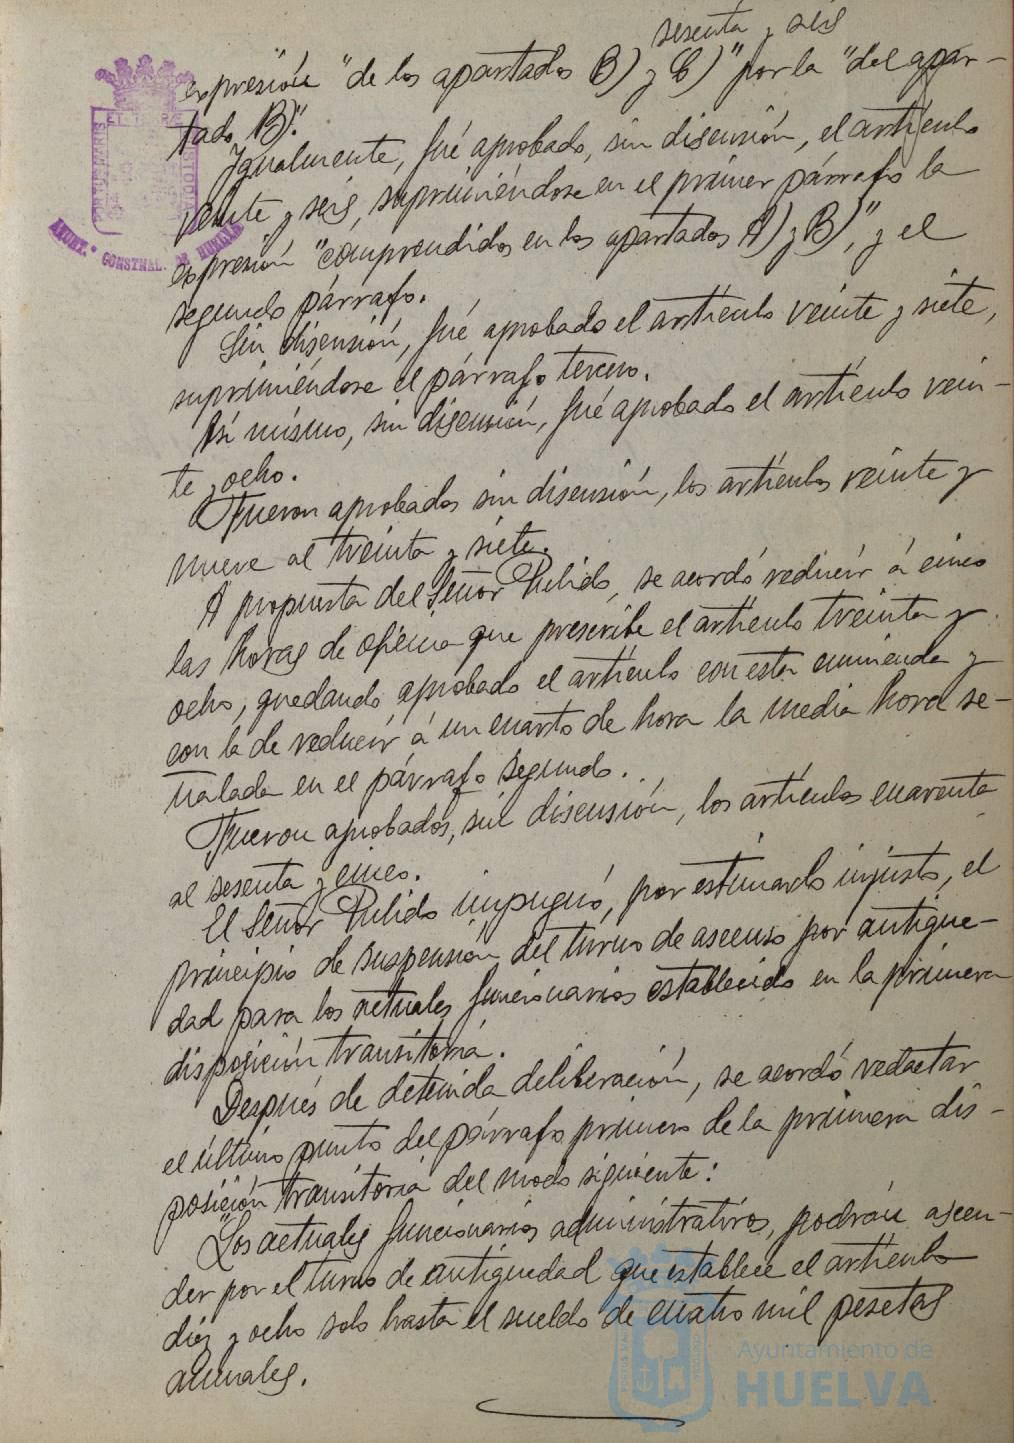 sesenta y seis
expresión "de los apartados B) y C)" por la "del apar-
tado B)".
Igualmente, fué aprobado, sin discusión, el artículo
veinte y seis, suprimiéndose en el primer párrafo la
expresión "comprendidos en los apartados A) y B)", y el
segundo párrafo.
Sin discusión, fué aprobado el artículo veinte y siete,
suprimiéndose el párrafo tercero.
Así mismo, sin discusión, fué aprobado el artículo vein-
te y ocho.
Fueron aprobados sin discusión, los artículos veinte y
nueve al treinta y siete.
A propuesta del Señor Pulido, se acordó reducir á cinco
las horas de oficina que prescribe el artículo treinta y
ocho, quedando aprobado el artículo con esta enmienda y
con la de reducir á un cuarto de hora la media hora se-
ñalada en el párrafo segundo.
Fueron aprobados, sin discusión, los artículos cuarenta
al sesenta y cinco.
El Señor Pulido impugnó, por estimarlo injusto, el
principio de suspensión del turno de ascenso por antigüe-
dad para los actuales funcionarios establecido en la primera
disposición transitoria.
Después de detenida deliberación, se acordó redactar
el último punto del párrafo primero de la primera dis-
posición transitoria del modo siguiente:
"Los actuales funcionarios administrativos, podrán ascen-
der por el turno de antigüedad que establece el artículo
diez y ocho solo hasta el sueldo de cuatro mil pesetas
anuales.
AYUNT.º CONSTNAL. DE HUELVA
Ayuntamiento de
HUELVA